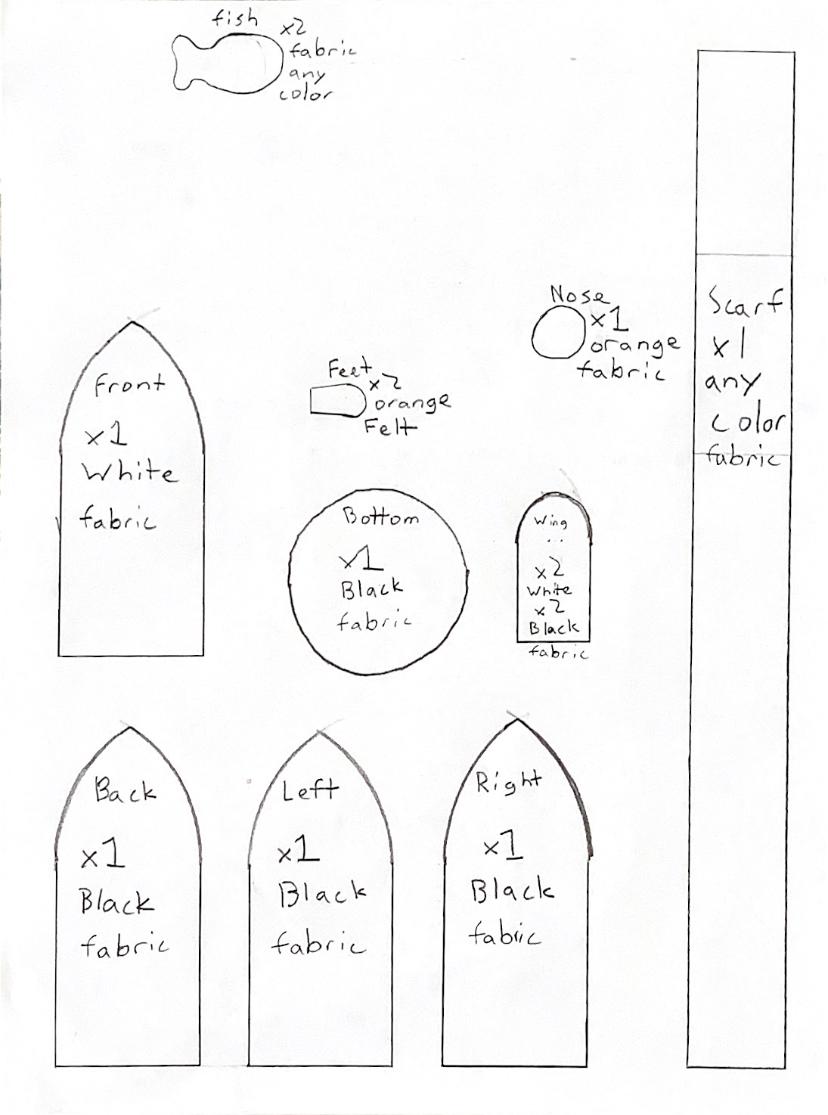 fish
x2
fabric
any
color
Nose
x1
orange
fabric
Scarf
x1
any
color
fabric
Front
x1
White
fabric
Feet
x2
orange
Felt
Bottom
x1
Black
fabric
Wing
x2
White
x2
Black
fabric
Back
x1
Black
fabric
Left
x1
Black
fabric
Right
x1
Black
fabric